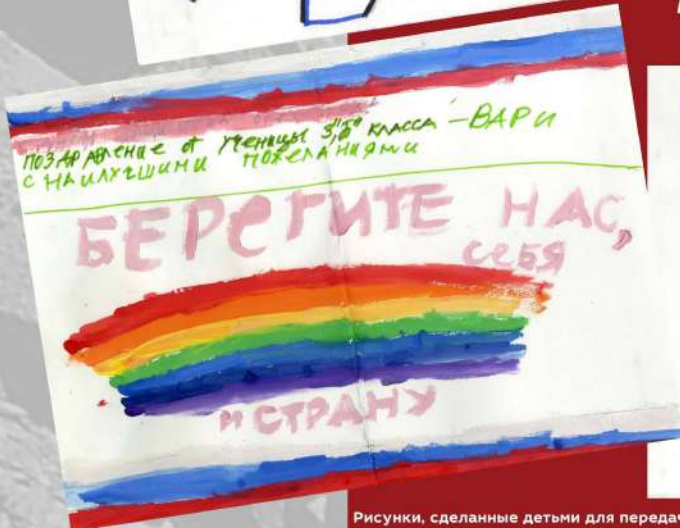 ПОЗДРАВЛЕНИЕ от Ученицы 3,,Б" КЛАССА – ВАРИ
С НАИЛУТШИМИ ПОЖЕЛАНИЯМИ
БЕРЕГИТЕ НАС,
СЕБЯ
И СТРАНУ
Рисунки, сделанные детьми для